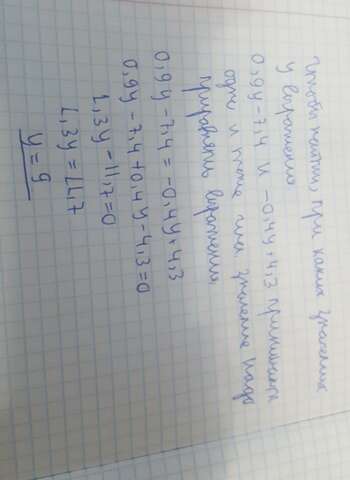 Чтобы найти, при каких значениях
у выражения
0,9y-7,4 и -0,4y+4,3 принимают
одно и тоже значение надо
приравнять выражения
0,9y-7,4=-0,4y+4,3
0,9y-7,4+0,4y-4,3=0
1,3y-11,7=0
1,3y=11,7
y=9